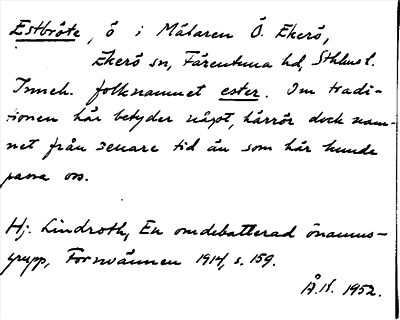 Estbröte, ö i Mälaren Ö. Ekerö,
Ekerö sn, Färentuna hd, Sthlms l.
Inneh. folknamnet ester. Om tradi-
tionen här betyder något, härrör dock nam-
net från senare tid än som här kunde
passa oss.
Hj. Lindroth, En omdebatterad önamns-
grupp, Fornvännen 1914, s. 159.
Å.N. 1952.